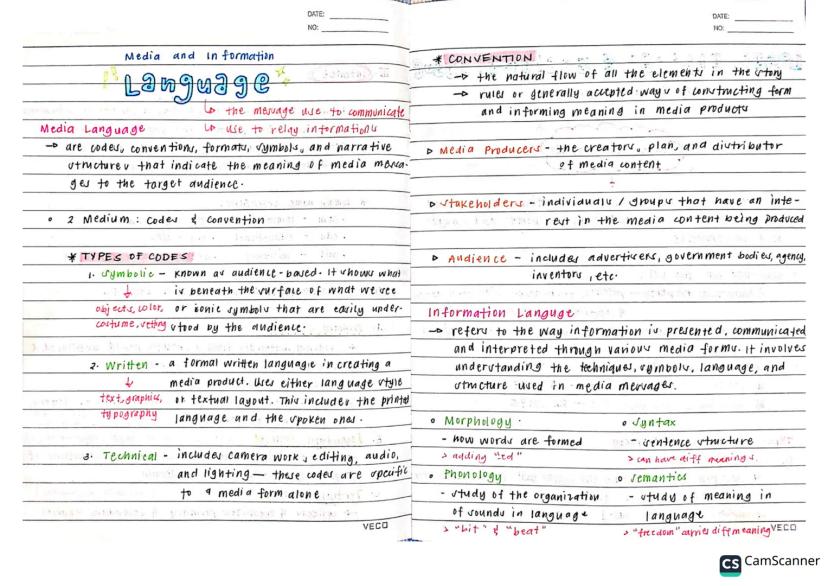 DATE:
NO:
Media and Information
Language
↳ the message use to communicate
Media Language ↳ use to relay informations
→ are codes, conventions, formats, symbols, and narrative
structures that indicate the meaning of media messa-
ges to the target audience.
• 2 Medium: Codes & convention
* TYPES OF CODES
1. Symbolic - known as audience-based. It shows what
↓ is beneath the surface of what we see
objects, color, or iconic symbols that are easily under-
costume, setting stood by the audience.
2. Written - a formal written language in creating a
↓ media product. Uses either language style
text, graphics, or textual layout. This includes the printed
typography language and the spoken ones.
3. Technical - includes camera work, editing, audio,
and lighting — these codes are specific
to a media form alone.
VECO
DATE:
NO:
* CONVENTION
→ the natural flow of all the elements in the story
→ rules or generally accepted ways of constructing form
and informing meaning in media products
▷ Media Producers - the creators, plan, and distributor
of media content
▷ Stakeholders - individuals / groups that have an inte-
rest in the media content being produced
▷ Audience - includes advertisers, government bodies, agency,
inventors, etc.
Information Languge
→ refers to the way information is presented, communicated
and interpreted through various media forms. It involves
understanding the techniques, symbols, language, and
structure used in media messages.
• Morphology • Syntax
- how words are formed - sentence structure
> adding "ed" > can have diff meanings.
• Phonology • Semantics
- study of the organization - study of meaning in
of sounds in language language
> "bit" & "beat" > "freedom" carries diff meaning
VECO
CS CamScanner